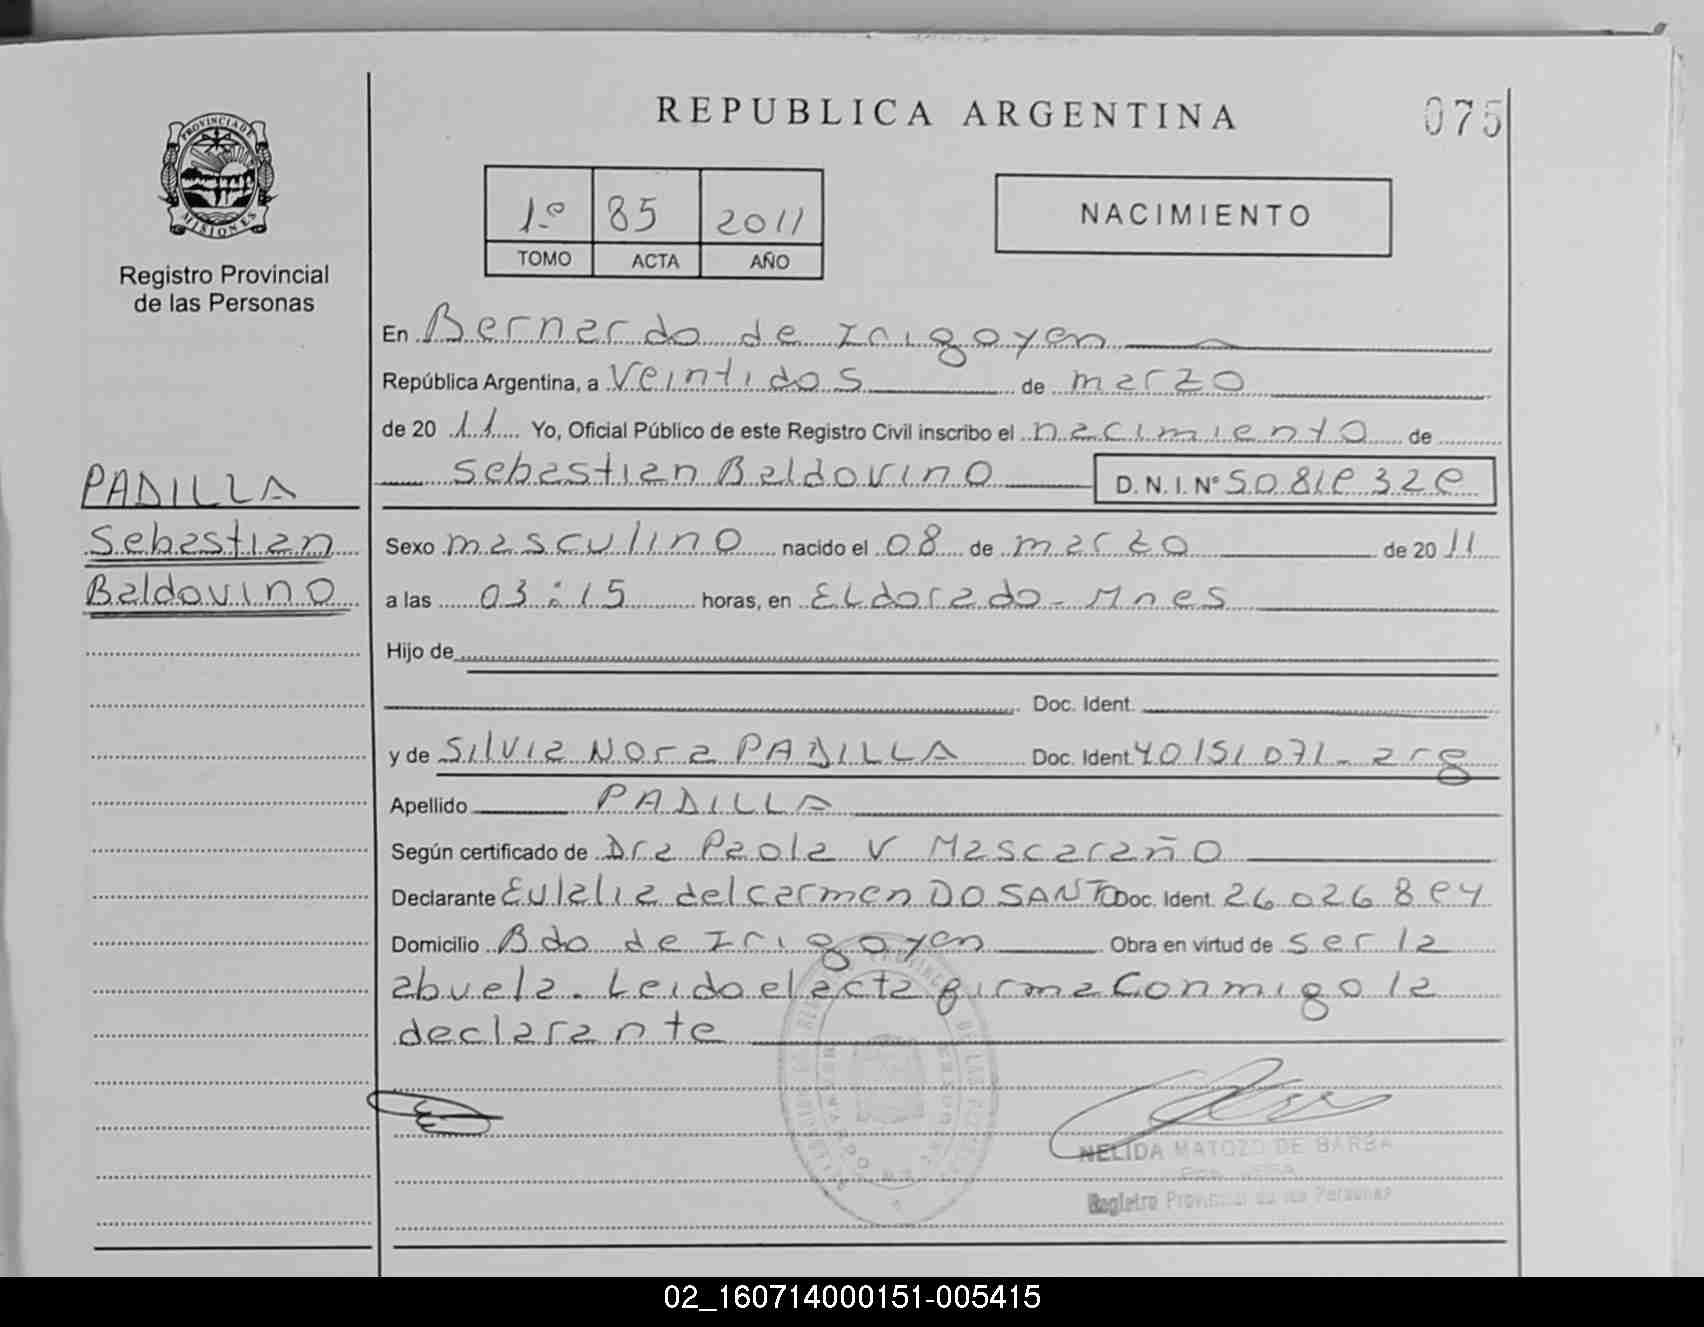 REPUBLICA ARGENTINA
075
PROVINCIA DE
MISIONES
Registro Provincial
de las Personas
1º 85 2011
TOMO ACTA AÑO
NACIMIENTO
En Bernardo de Irigoyen
República Argentina, a Veintidos de marzo
de 20 11 Yo, Oficial Público de este Registro Civil inscribo el nacimiento de
Sebastian Baldovino D.N.I. Nº
PADILLA
Sebastian
Baldovino
Sexo masculino nacido el 08 de marzo de 20 11
a las 03:15 horas, en ELdorado - Mnes
Hijo de
Doc. Ident.
y de Silvia Nora PADILLA Doc. Ident 40151071 - arg
Apellido PADILLA
Según certificado de Dra Paola V Mascaraño
Declarante Eulalia del carmen DO SANTO Doc. Ident.
Domicilio Bdo de Irigoyen Obra en virtud de ser la
abuela. Leido el acta firma Conmigo la
declarante
NELIDA MATOZO DE BARBA
Registro Provincial de las Personas
02_160714000151-005415